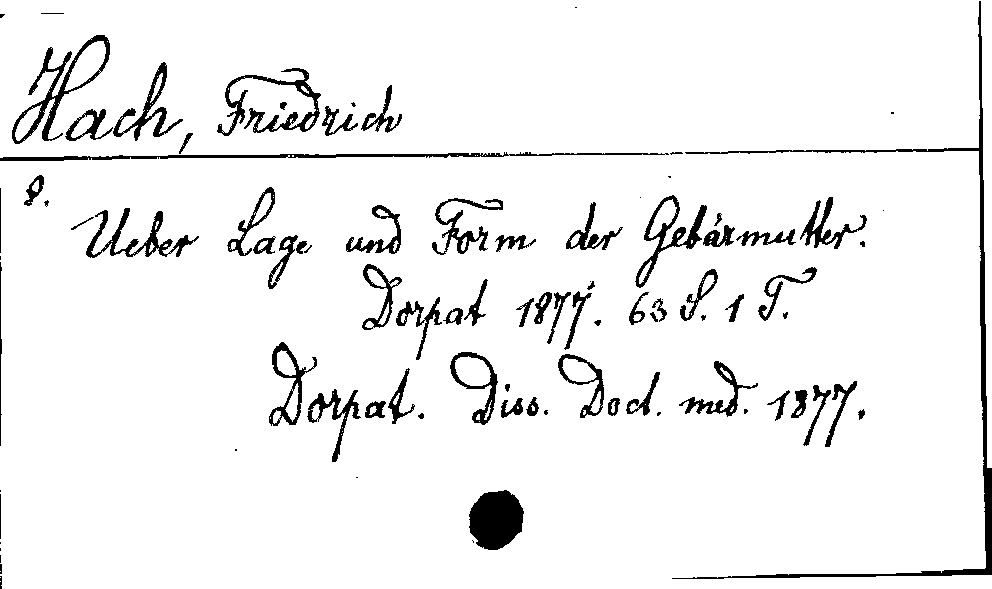 Hach, Friedrich
8.
Ueber Lage und Form der Gebärmutter.
Dorpat 1877. 63 S. 1 T.
Dorpat. Diss. Doct. med. 1877.